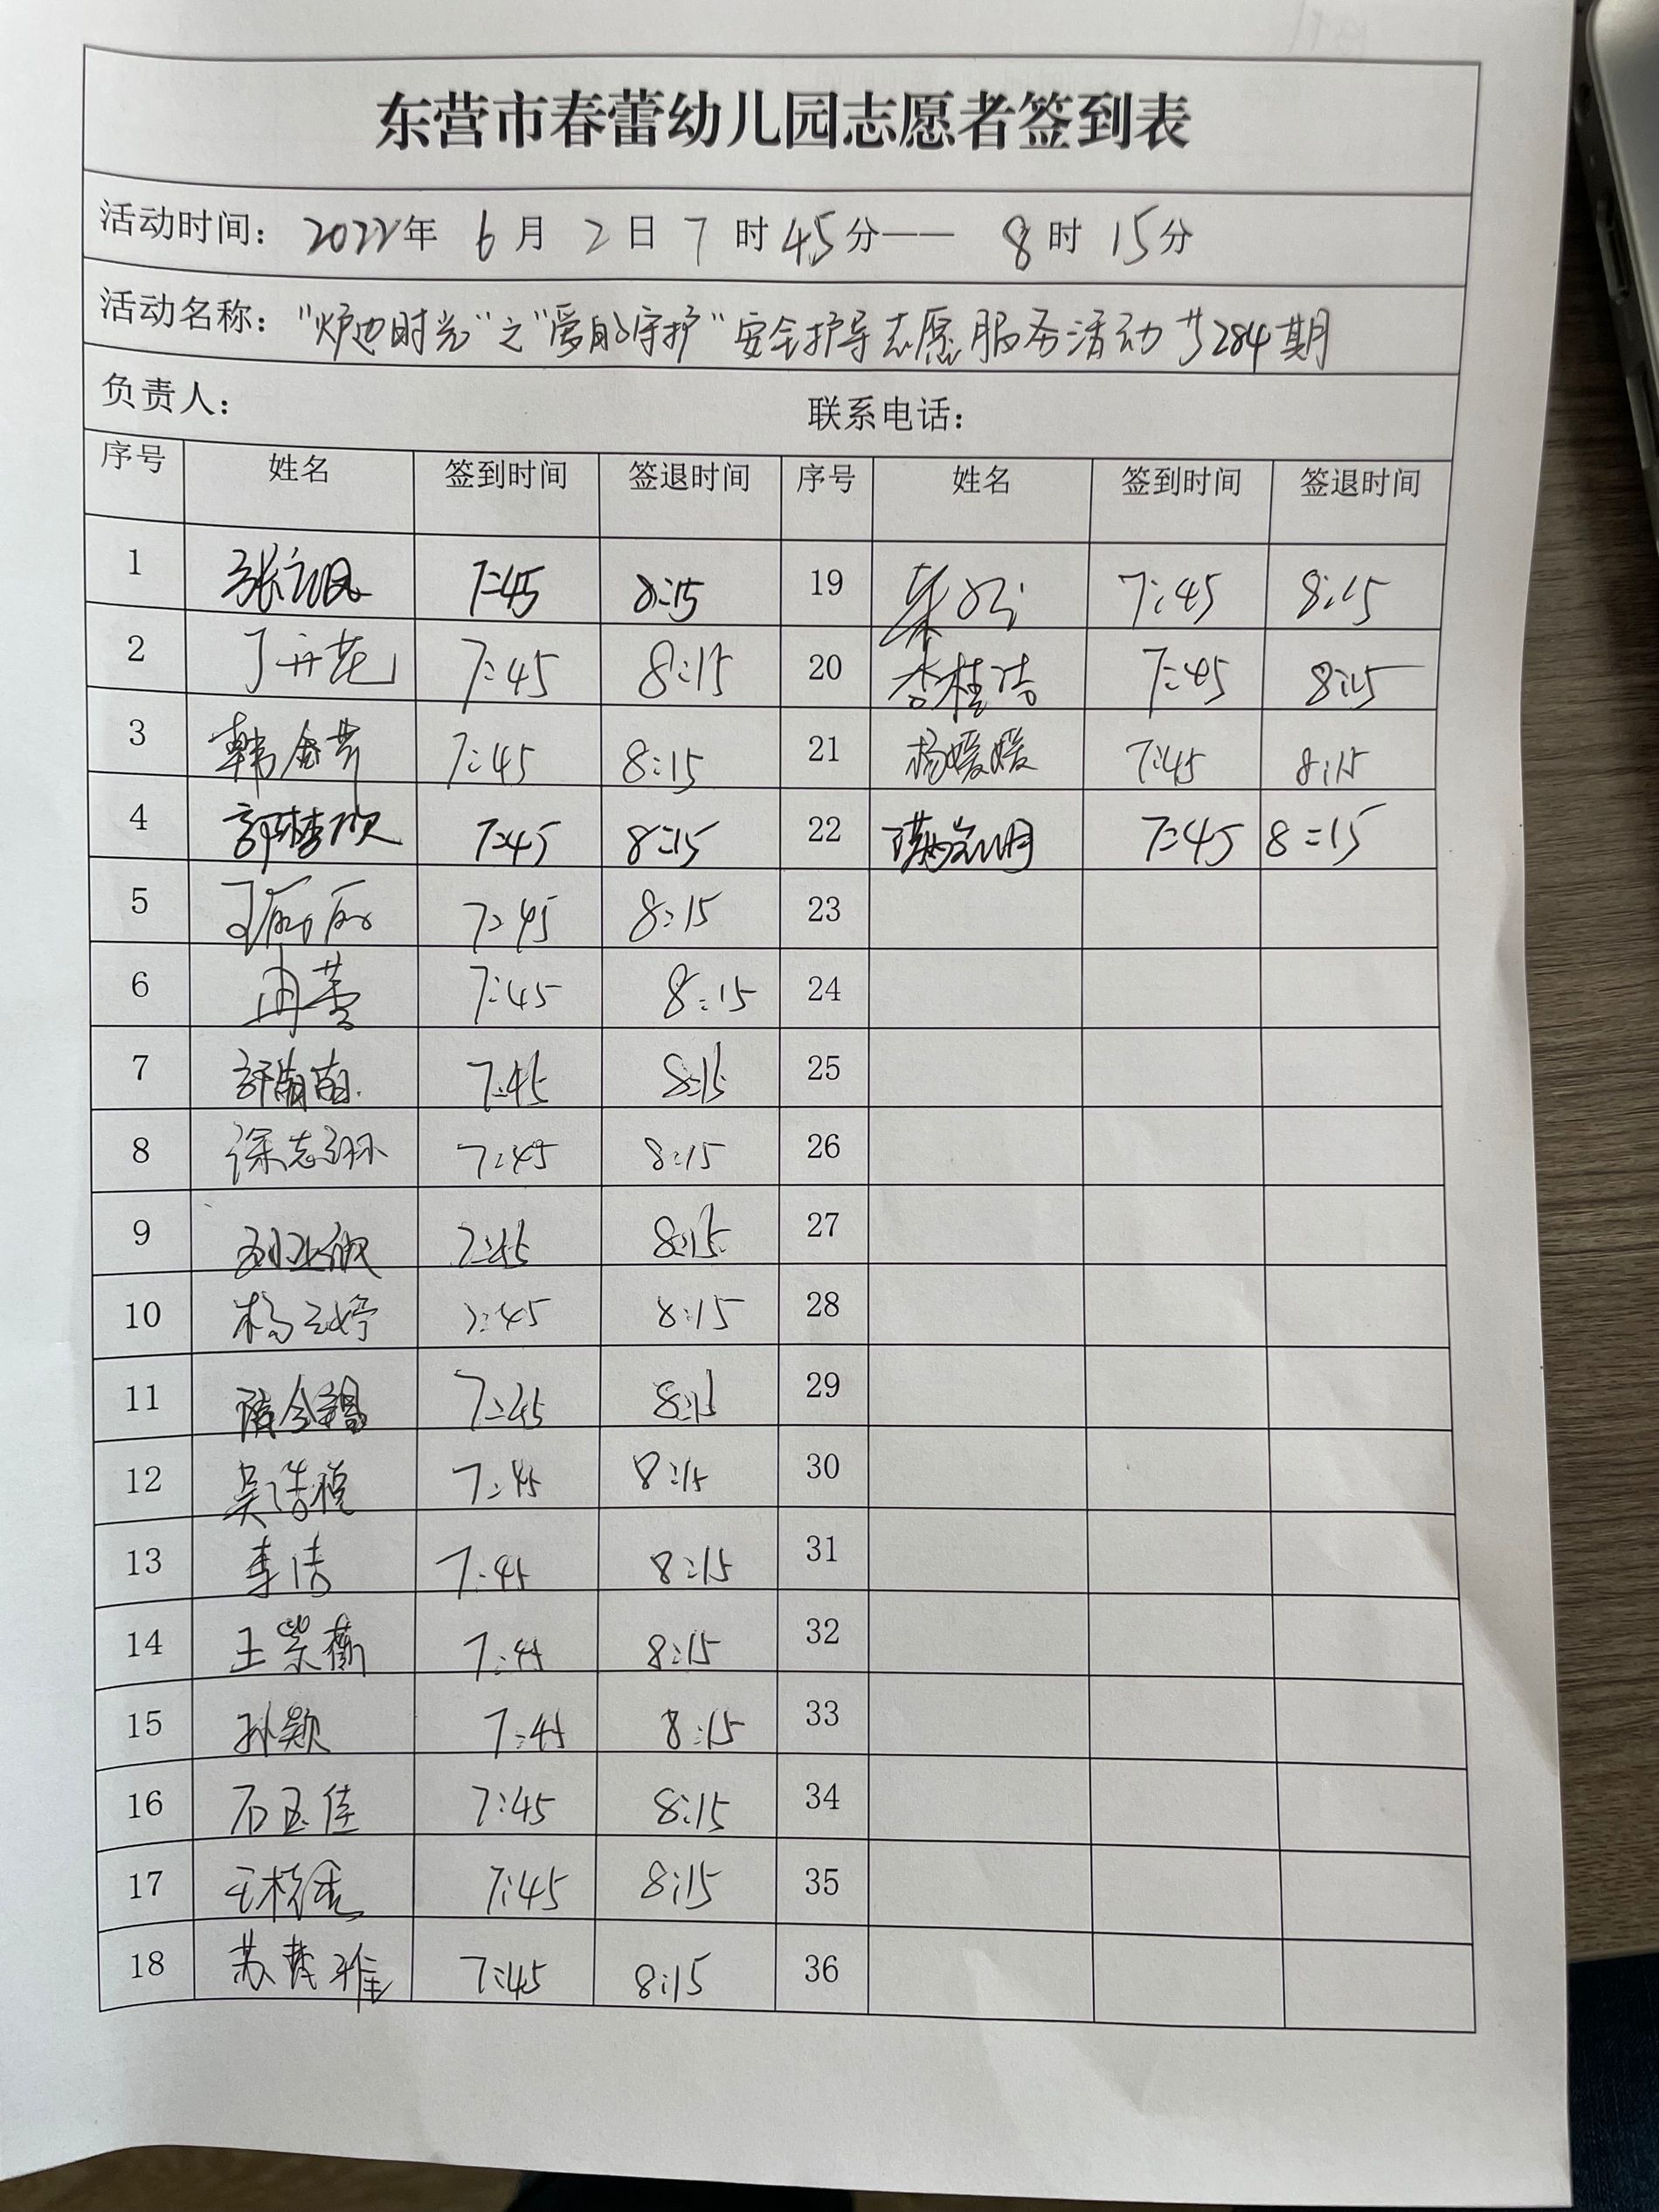 东营市春蕾幼儿园志愿者签到表
活动时间：2022年 6 月 2 日 7 时 45 分—— 8 时 15 分
活动名称："炉边时光"之"爱的守护"安全护导志愿服务活动 284期
负责人： 联系电话：
序号 姓名 签到时间 签退时间 序号 姓名 签到时间 签退时间
1 7:45 8:15 19 7:45 8:15
2 7:45 8:15 20 李桂洁 7:45 8:15
3 韩金芳 7:45 8:15 21 杨媛媛 7:45 8:15
4 7:45 8:15 22 7:45 8:15
5 7:45 8:15 23
6 7:45 8:15 24
7 7:45 8:15 25
8 徐志琳 7:45 8:15 26
9 7:45 8:15 27
10 杨云婷 7:45 8:15 28
11 7:45 8:15 29
12 7:45 8:15 30
13 李洁 7:45 8:15 31
14 王紫薇 7:45 8:15 32
15 孙颖 7:45 8:15 33
16 石玉佳 7:45 8:15 34
17 7:45 8:15 35
18 7:45 8:15 36